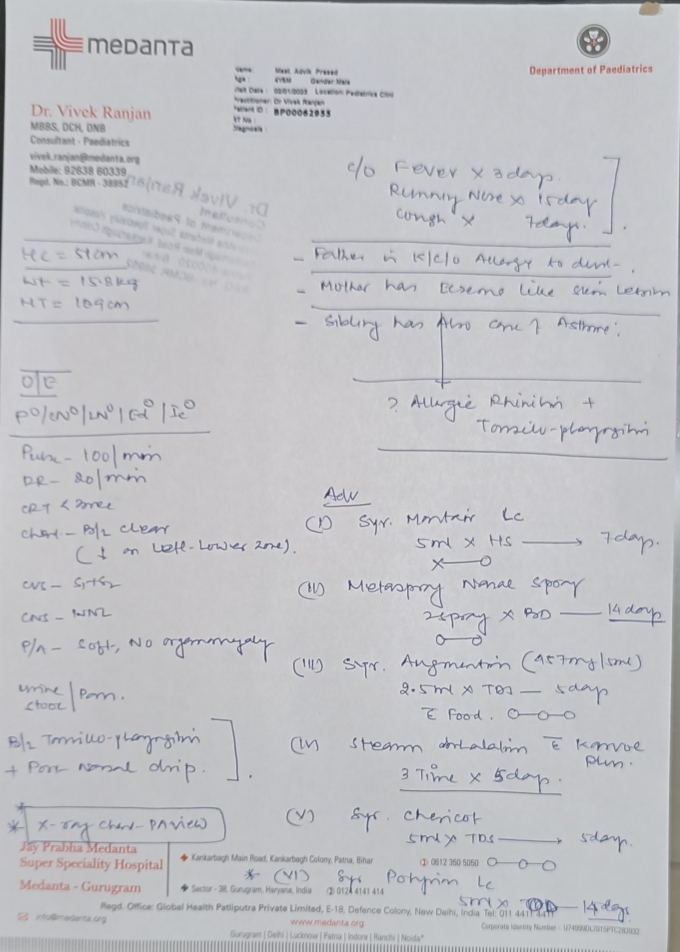 MEDANTA
Department of Paediatrics
Name: Mast. Advik Prasad
Age: 4YRM Gender: Male
Visit Date: 02/01/2023 Location: Pediatrics Clinic
Practitioner: Dr Vivek Ranjan
Patient ID: BP00062955
Diagnosis:
Dr. Vivek Ranjan
MBBS, DCH, DNB
Consultant - Paediatrics
vivek.ranjan@medanta.org
Mobile: 92638 60339
Regd. No.: BCMR - 38952
c/o Fever x 3 day.
Running Nose x 15 day
cough x 7 days.
HC = 51cm
Wt = 15.8 kg
HT = 109cm
- Father is K/C/O Allergy to dust.
- Mother has Eczema like skin
- Sibling has Also case of Asthma.
O/E
? Allergic Rhinitis +
Tonsilo-pharyngitis
Pulse - 100/min
RR - 20/min
CRT < 3sec
chest - B/L clear
(↓ on Left-Lower zone).
CVS - S1+S2
CNS - WNL
P/A - Soft, No organomegaly
urine
stool
B/L Tonsillo-pharyngitis
+ Post Nasal drip.
* X-ray Chest - PA view
Adv
(I) Syr. Montair Lc
5ml x HS → 7 day.
(II) Metaspray Nasal spray
2 spray x BD — 14 days
(III) Syr. Augmentin (457mg/5ml)
2.5ml x TDS — 5 day
c Food.
(IV) Steam inhalation c Karvol
Plus.
3 Time x 5 day.
(V) Syr.
5ml x TDS → 5 day.
* (VI) Syr
5ml x — 14 days
Jay Prabha Medanta
Super Speciality Hospital
Kankarbagh Main Road, Kankarbagh Colony, Patna, Bihar
0612 350 5050
Medanta - Gurugram
Sector - 38, Gurugram, Haryana, India
0124 4141 414
Regd. Office: Global Health Patliputra Private Limited, E-18, Defence Colony, New Delhi, India Tel: 011 4411 4411
info@medanta.org
www.medanta.org
Gurugram | Delhi | Lucknow | Patna | Indore | Ranchi | Noida*